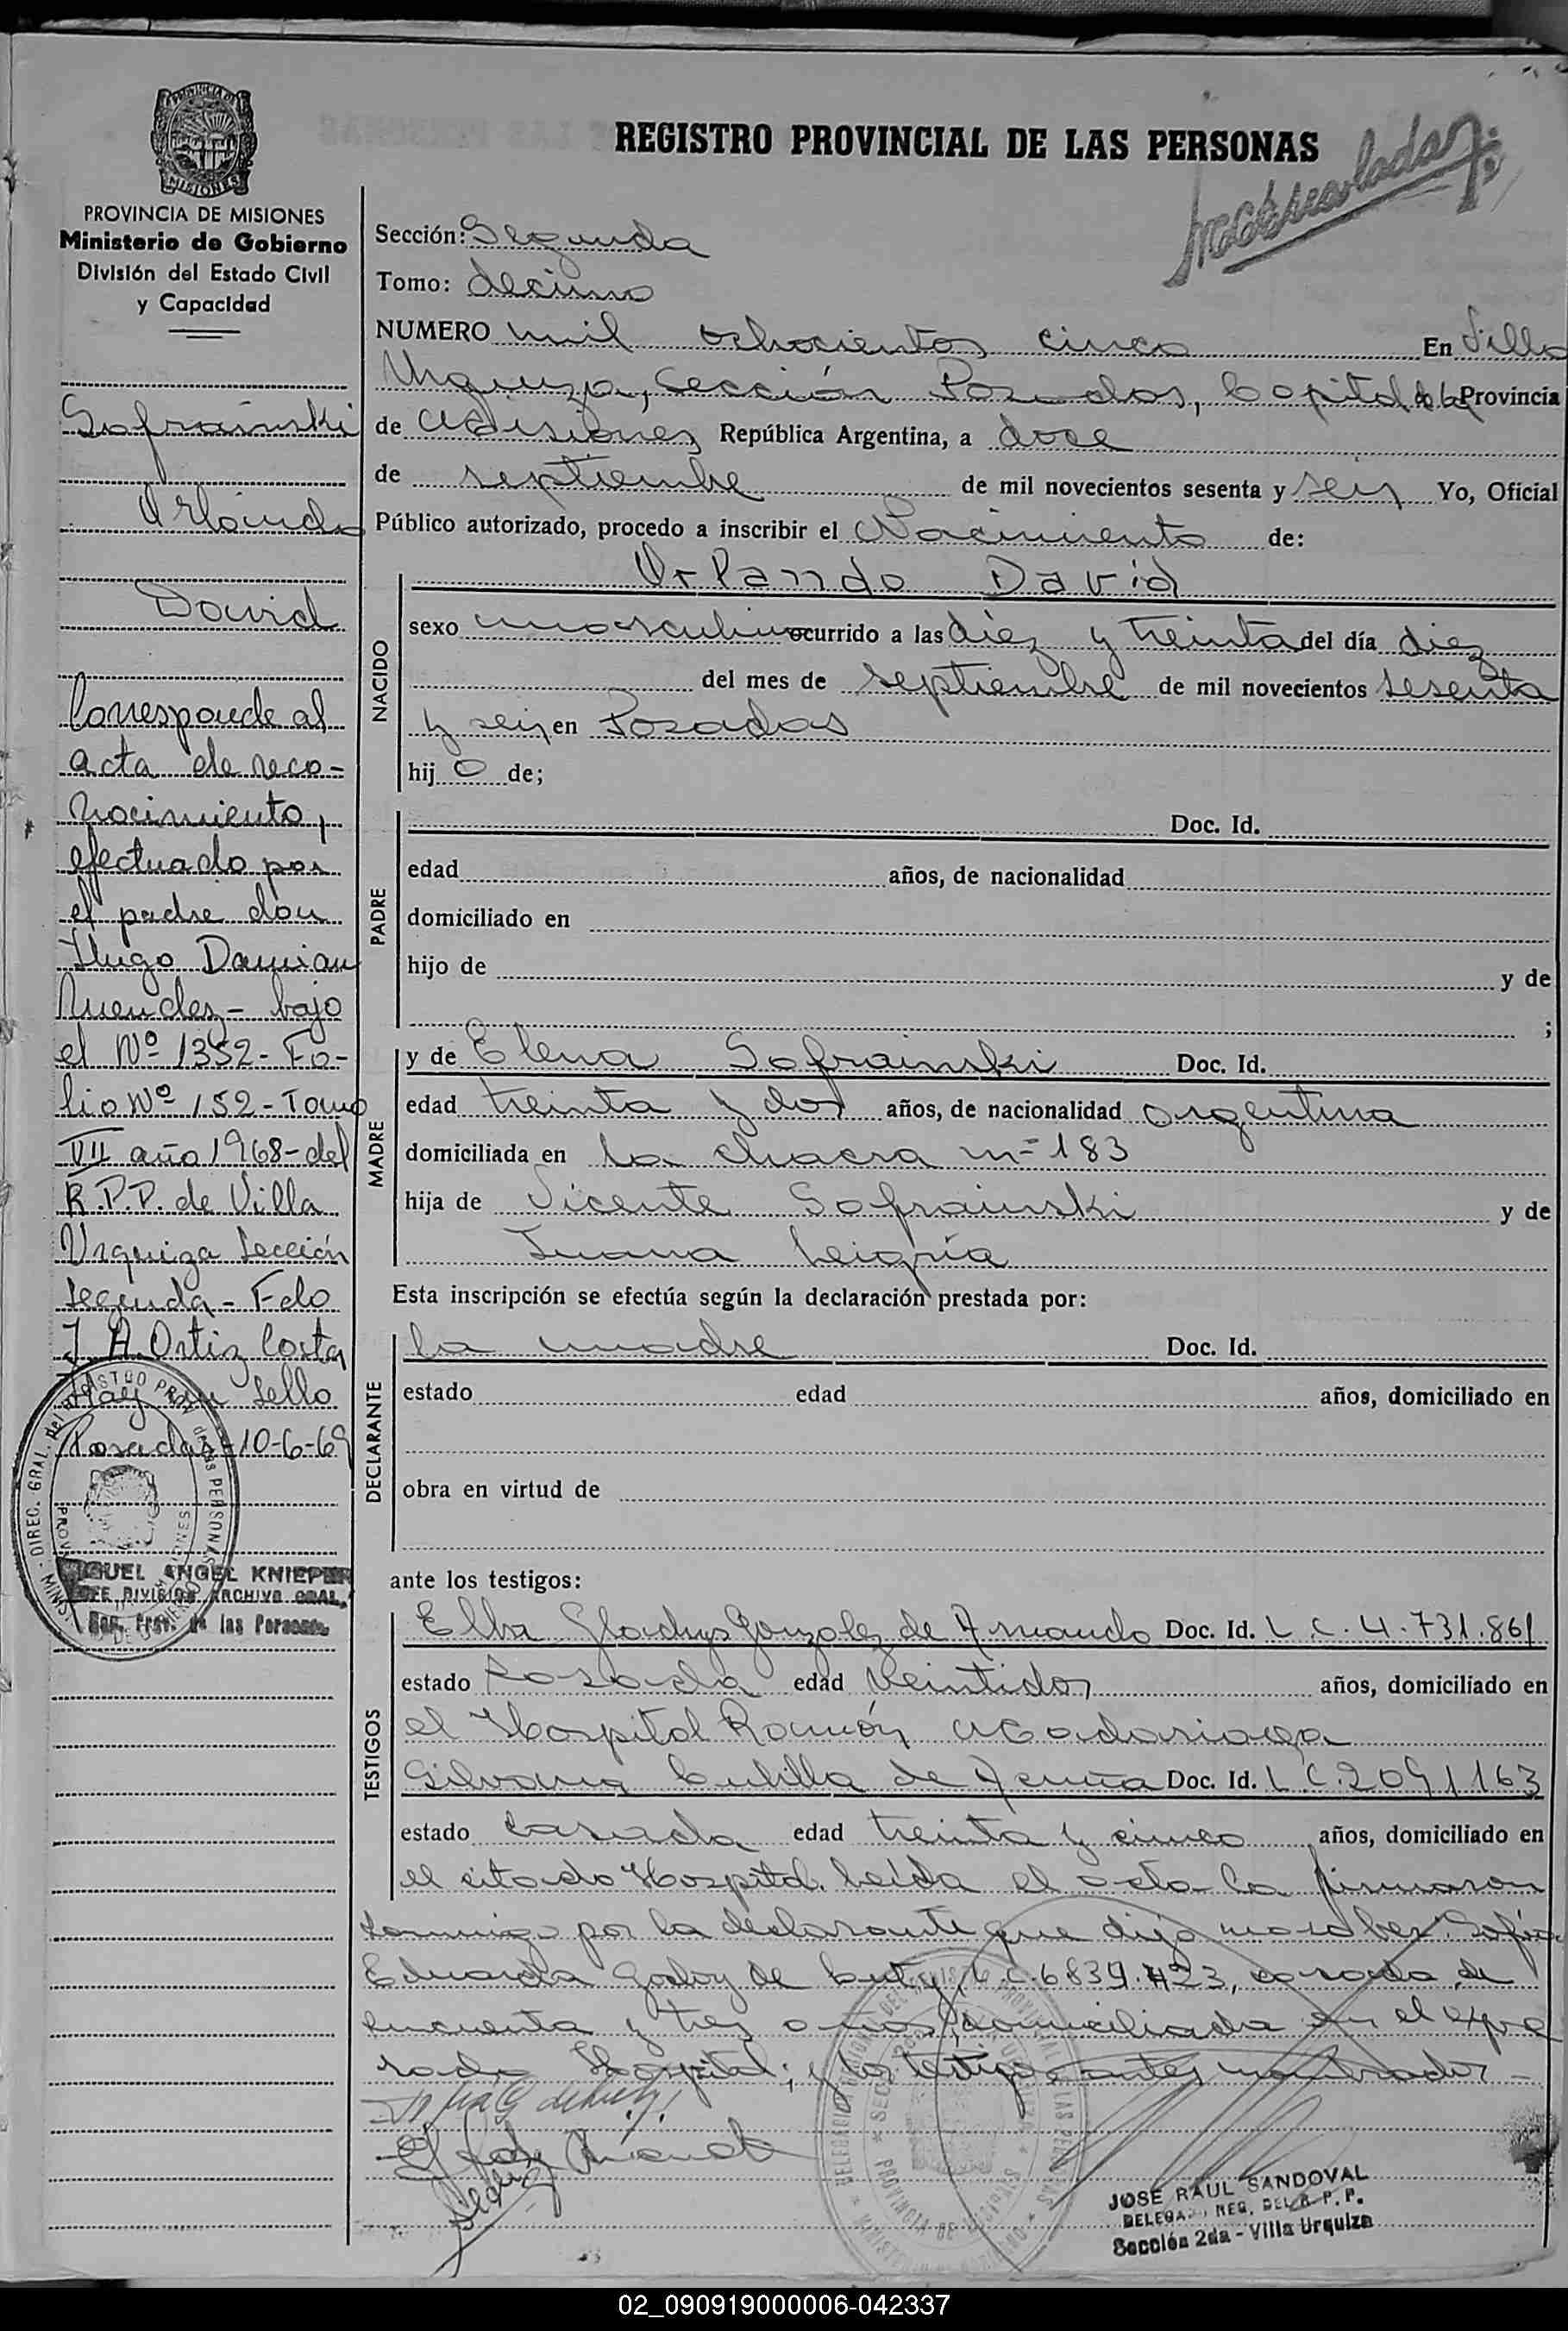 REGISTRO PROVINCIAL DE LAS PERSONAS
MISIONES
PROVINCIA DE MISIONES
Ministerio de Gobierno
División del Estado Civil
y Capacidad
Sofrainski
Orlando
David
Corresponde al
acta de reco-
nocimiento,
efectuado por
el padre don
Hugo Damian
Mendez - bajo
el Nº 1352 - Fo-
lio Nº 152 - Tomo
VII año 1968 - del
R.P.P. de Villa
Urquiza Sección
Segunda - Fdo
J. A. Ortiz Costa
Hay un Sello
Posadas 10-6-69
MIGUEL ANGEL KNIEPER
JEFE DIVISION ARCHIVO GRAL.
Reg. Prov. de las Personas
Sección: Segunda
Tomo: decimo
NUMERO mil ochocientos cinco En Villa
Urquiza, Sección Posadas, Capital de la Provincia
de Misiones República Argentina, a doce
de septiembre de mil novecientos sesenta y seis Yo, Oficial
Público autorizado, procedo a inscribir el Nacimiento de:
NACIDO
Orlando David
sexo masculino ocurrido a las diez y treinta del día diez
del mes de septiembre de mil novecientos sesenta
y seis en Posadas
hij o de;
PADRE
Doc. Id.
edad años, de nacionalidad
domiciliado en
hijo de y de
;
MADRE
y de Elena Sofrainski Doc. Id.
edad treinta y dos años, de nacionalidad argentina
domiciliada en la chacra nº 183
hija de Vicente Sofrainski y de
Juana
Esta inscripción se efectúa según la declaración prestada por:
DECLARANTE
la madre Doc. Id.
estado edad años, domiciliado en
obra en virtud de
ante los testigos:
TESTIGOS
Elba Gladys Gonzalez de Doc. Id. L.C. 4.731.861
estado casada edad veintidos años, domiciliado en
el Hospital Ramón Madariaga
de Acuña Doc. Id. L.C. 2091163
estado casada edad treinta y cinco años, domiciliado en
el citado Hospital. Leída el acta la firmaron
conmigo por la declarante que dijo no saber: Sofia
Eduarda Godoy de L.C. 6839.423, casada, de
cincuenta y tres años, domiciliada en el expre
sado Hospital; y los testigos antes nombrados -
JOSE RAUL SANDOVAL
DELEGADO REG. DEL R. P. P.
Sección 2da - Villa Urquiza
02_090919000006-042337